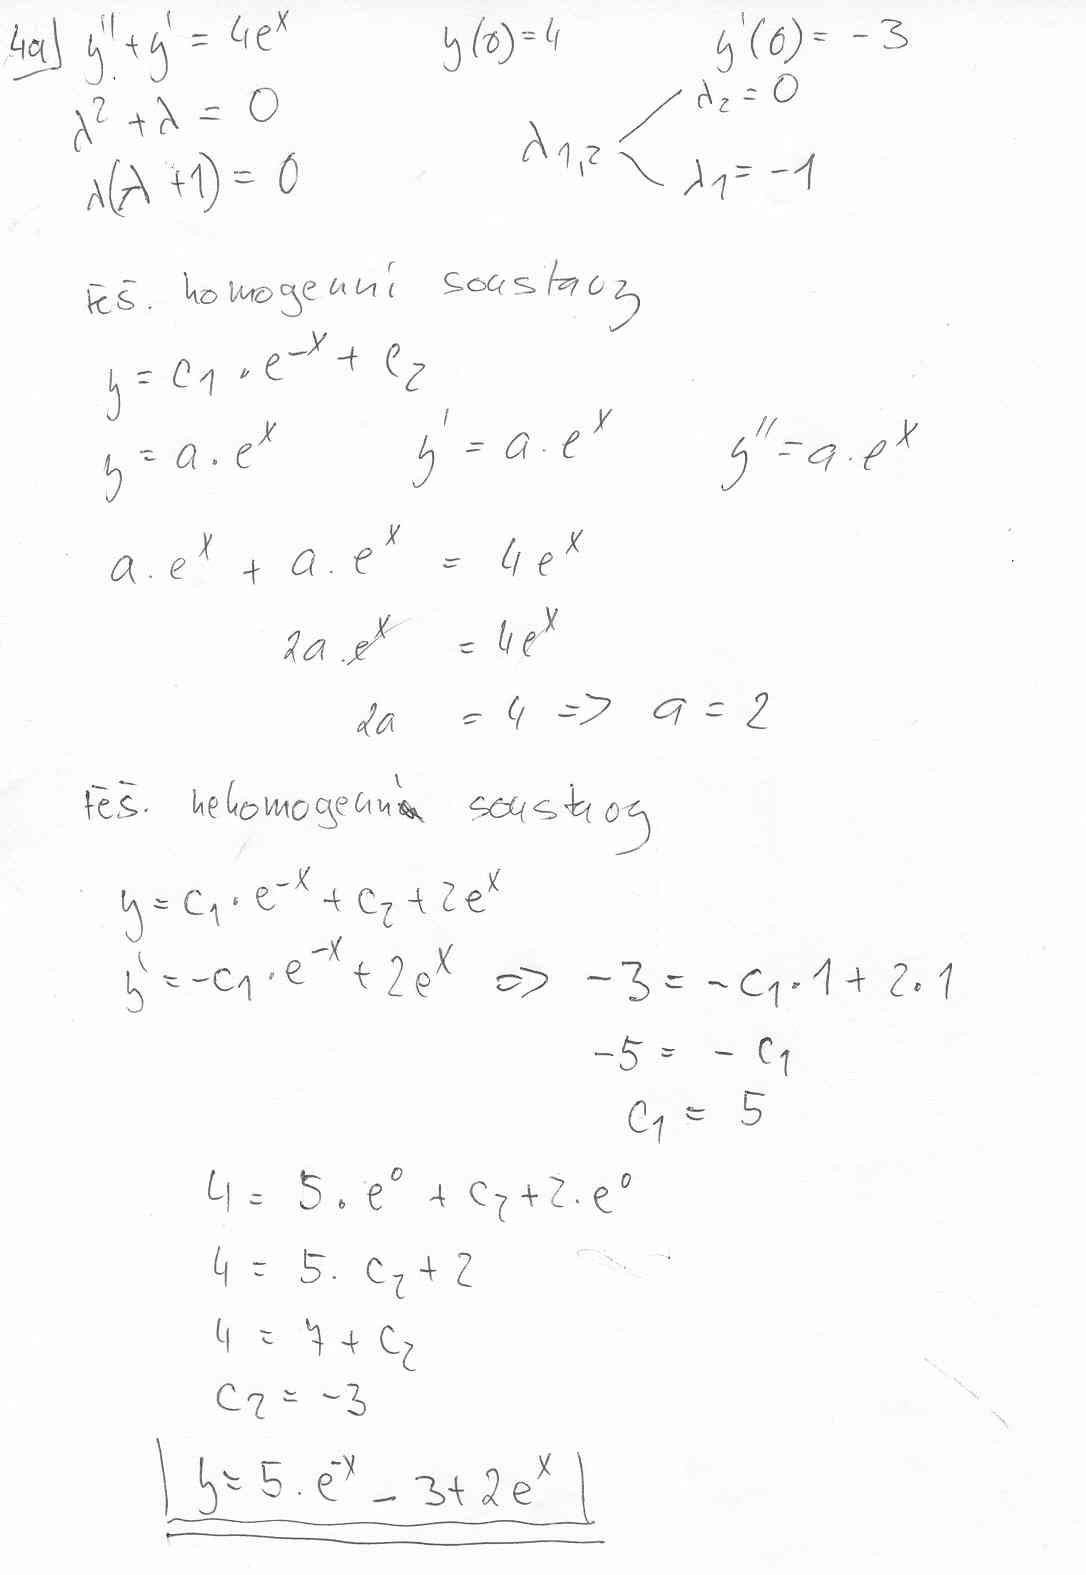 4a) y'' + y' = 4e^x y(0) = 4 y'(0) = -3
λ² + λ = 0 λ₁,₂ λ₂ = 0
λ(λ + 1) = 0 λ₁ = -1
řeš. homogenní soustavy
y = c₁ · e^-x + c₂
y = a · e^x y' = a · e^x y'' = a · e^x
a · e^x + a · e^x = 4e^x
2a · e^x = 4e^x
2a = 4 => a = 2
řeš. nehomogenní soustavy
y = c₁ · e^-x + c₂ + 2e^x
y' = -c₁ · e^-x + 2e^x => -3 = -c₁ · 1 + 2 · 1
-5 = - c₁
c₁ = 5
4 = 5 · e⁰ + c₂ + 2 · e⁰
4 = 5 · c₂ + 2
4 = 7 + c₂
c₂ = -3
y = 5 · e^-x - 3 + 2e^x